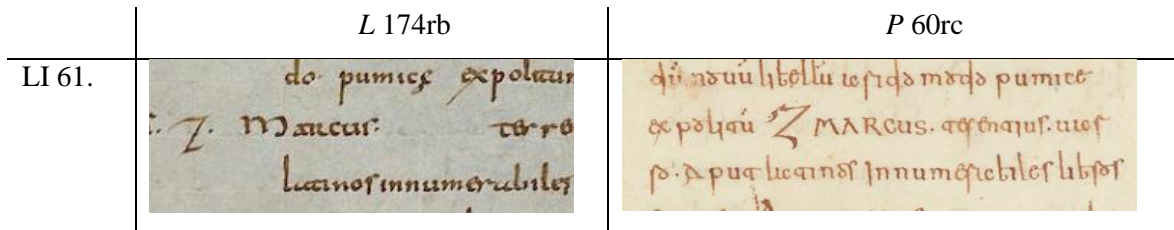 L 174rb P 60rc
LI 61.
do· pumicę expolitum
Z. Marcus· terre
latinos innumerabiles
libellū pumice
expolitū Z MARCUS. terentius.
Aput latinos Innumerabiles libros